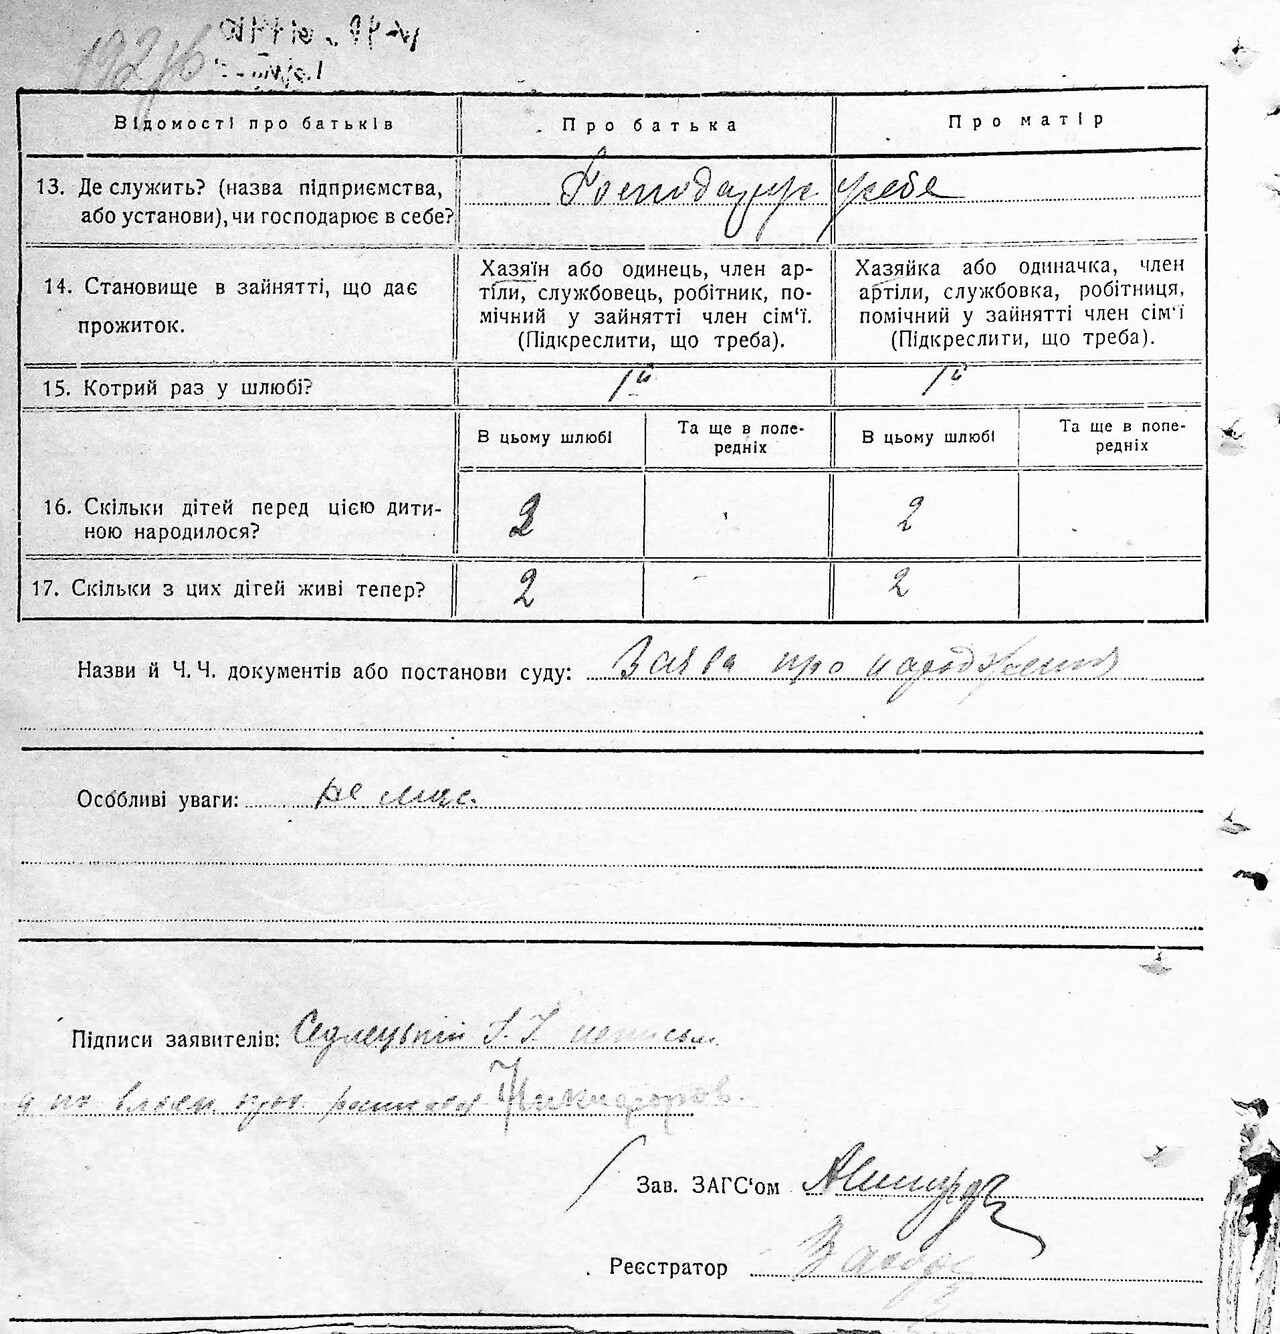 Відомості про батьків
Про батька
Про матір
13. Де служить? (назва підприємства,
або установи), чи господарює в себе?
Господарює у себе
14. Становище в зайнятті, що дає
прожиток.
Хазяїн або одинець, член ар-
тіли, службовець, робітник, по-
мічний у зайнятті член сім'ї.
(Підкреслити, що треба).
Хазяйка або одиначка, член
артіли, службовка, робітниця,
помічний у зайнятті член сім'ї
(Підкреслити, що треба).
15. Котрий раз у шлюбі?
1й
1й
В цьому шлюбі
Та ще в попе-
редніх
В цьому шлюбі
Та ще в попе-
редніх
16. Скільки дітей перед цією дити-
ною народилося?
2
2
17. Скільки з цих дітей живі тепер?
2
2
Назви й Ч. Ч. документів або постанови суду: Заява про народження
Особливі уваги: не має.
Підписи заявителів: Седлецький
Зав. ЗАГС'ом
Реєстратор